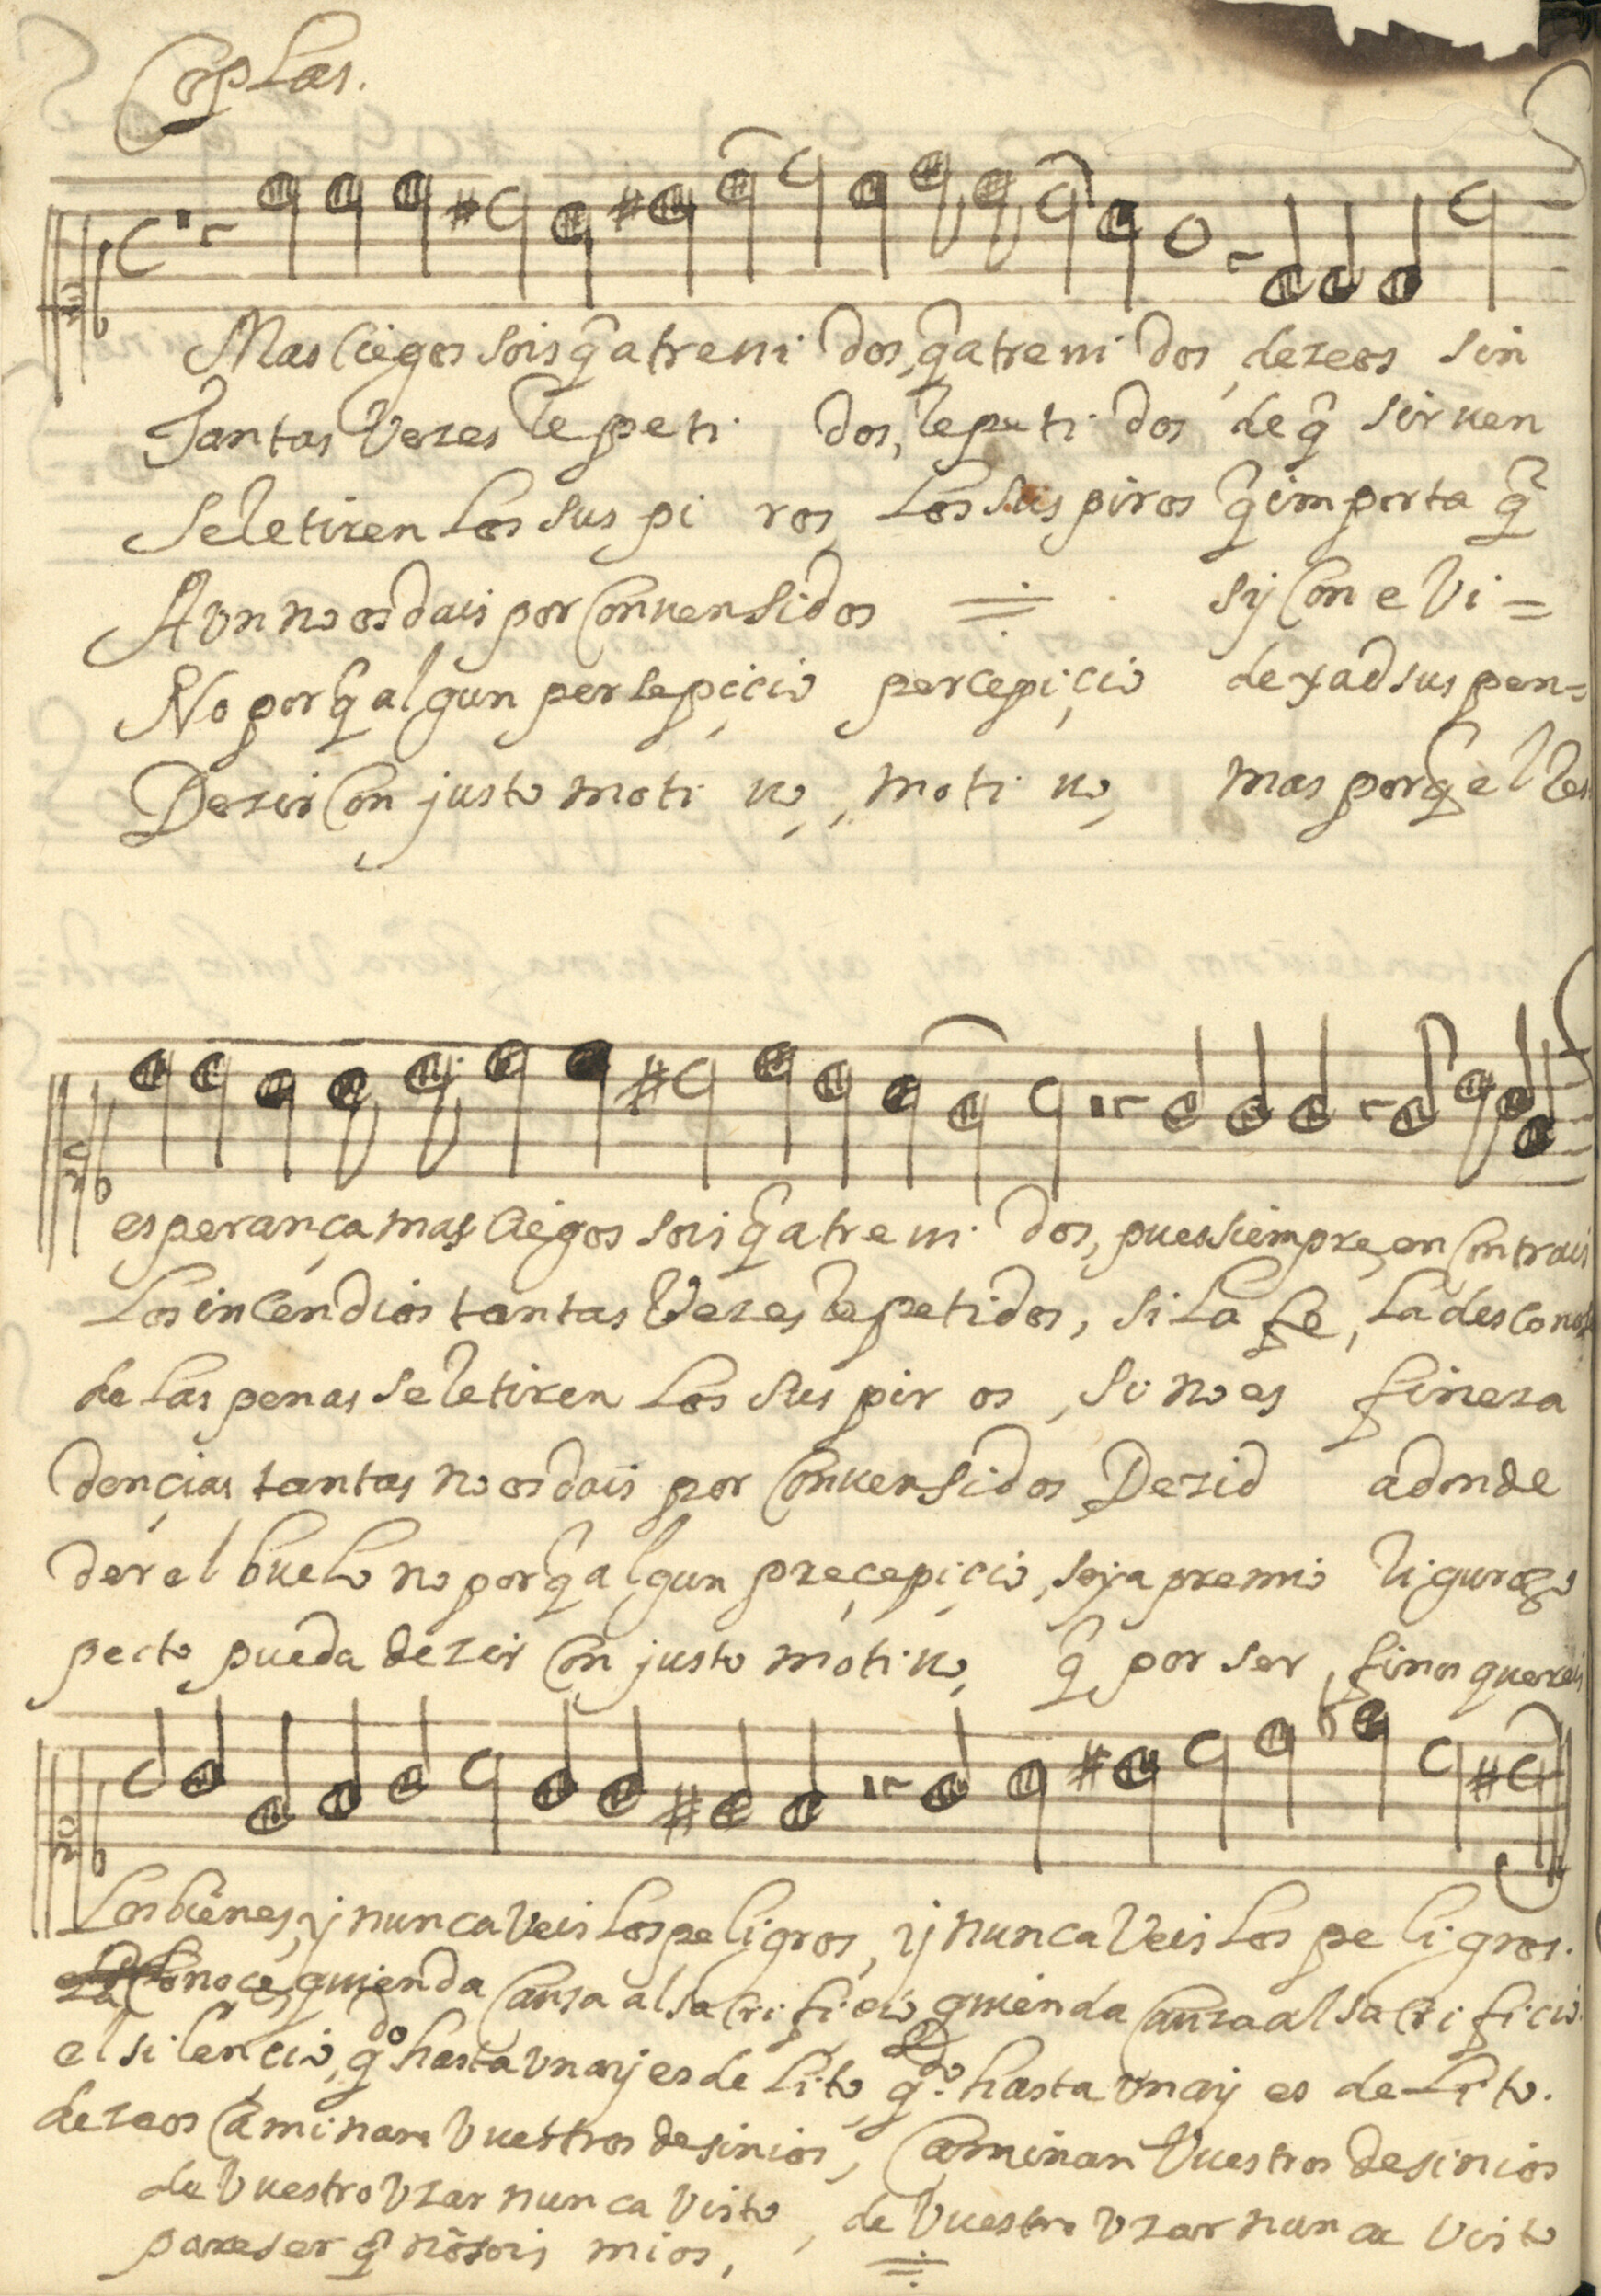 Coplas.
Mas ciegos sois q̃ atreui dos, q̃ atreui dos, dezeos sin
Tantas Vezes repeti dos, repeti dos de q̃ siruen
Se retiren Los sus pi ros, Los sus piros q̃ importa q̃
Aun no os dais por Conuensidos sy Con e Vi =
No porq̃ algun persepicio percepicio dexad suspen=
Dezir Con justo moti uo, moti uo, mas porq̃ el Res
esperança mas Ciegos sois q̃ atreui dos, pues siempre, en Contrais
Los incendios tantas Vezes repetidos, si La fe, La des Cono
de Las penas se retiren Los Sus pir os, Si no es fineza
dençias tantas no os dais por Conuensidos Dezid adonde
der el buelo no porq̃ algun preçepiçio, seja premio rigurozo
pecto pueda dezir Con justo motiuo, q̃ por ser, finos quereis
Los bienes, y nunca Veis Los peligros, y nunca Veis Los pe li gros.
Conoce, quien da Cauza al sacri ficio quien da Cauza al sacri ficio.
el silençio, qdo hasta vn ay es de Lito, qdo hasta vn ay es de Li to.
dezeos Caminan Vuestros desinios, Caminan Vuestros desinios
de Vuestro Vzar nunca Visto, de Vuestro Vzar nun ca Visto
pareser q̃ nõ sois mios,